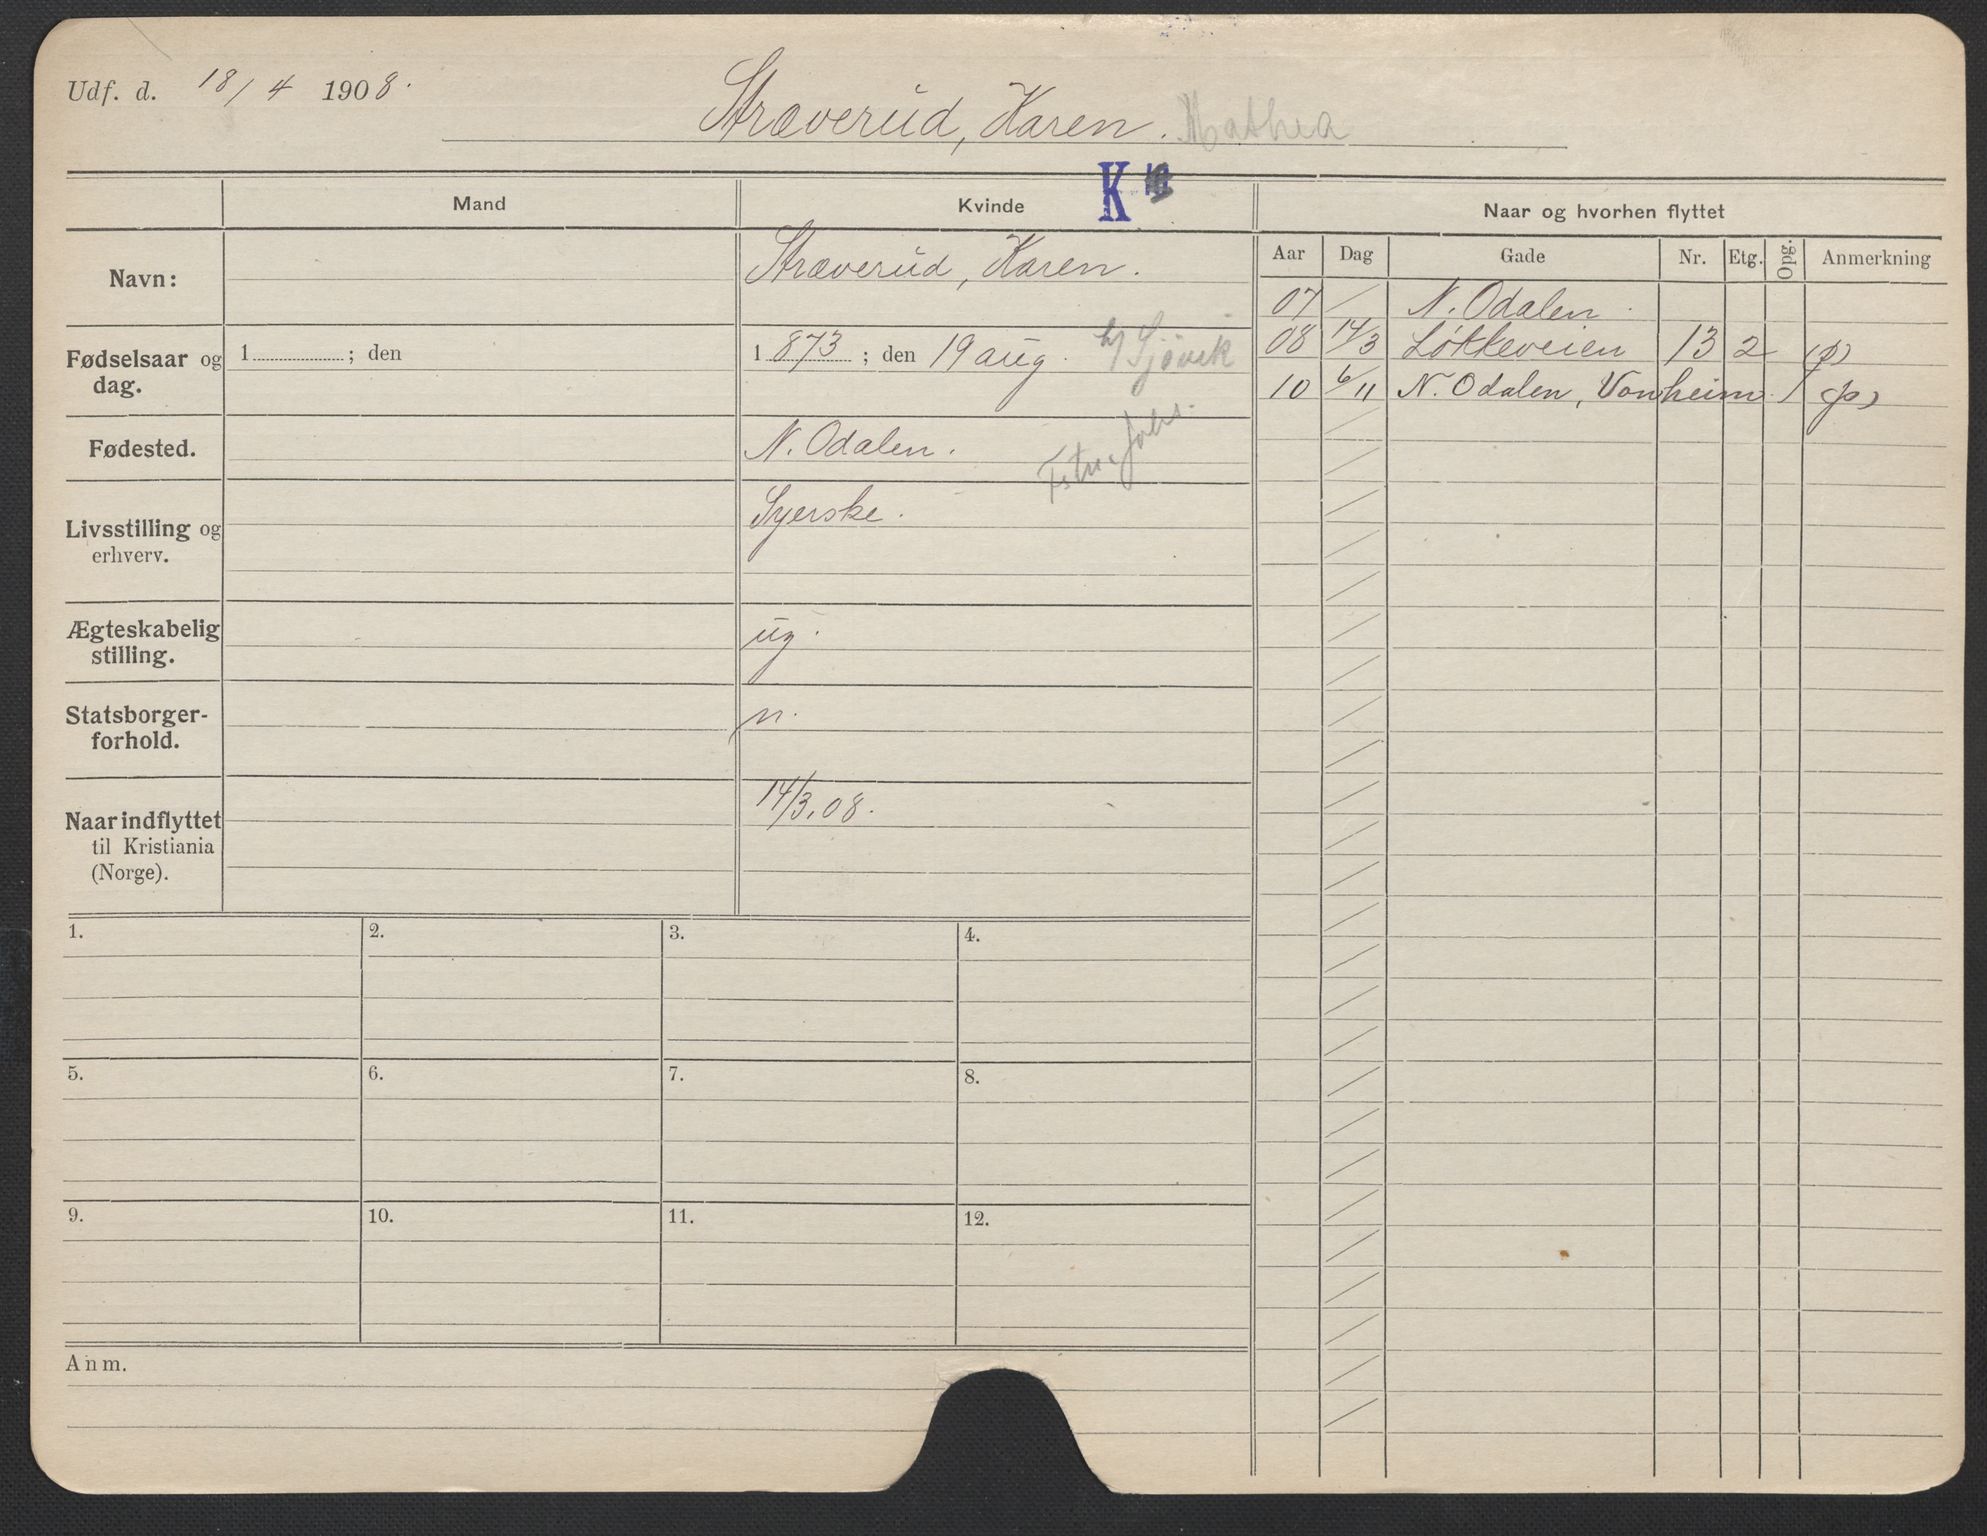 Udf. d. 18/4 1908.
Stræverud, Karen. Mathea
K
Mand
Kvinde
Naar og hvorhen flyttet
Aar Dag Gade Nr. Etg. Opg. Anmerkning
Navn:
Stræverud, Karen.
07 / N. Odalen.
Fødselsaar og dag.
1 ; den
1873 ; den 19 aug.
Gjøvik
08 14/3 Løkkeveien 13 2 (p)
10 6/11 N. Odalen, Vonheim (p)
Fødested.
N. Odalen.
Livsstilling og erhverv.
Syerske.
Ægteskabelig stilling.
ug.
Statsborger-
forhold.
n.
Naar indflyttet
til Kristiania
(Norge).
14/3.08.
1. 2. 3. 4.
5. 6. 7. 8.
9. 10. 11. 12.
Anm.